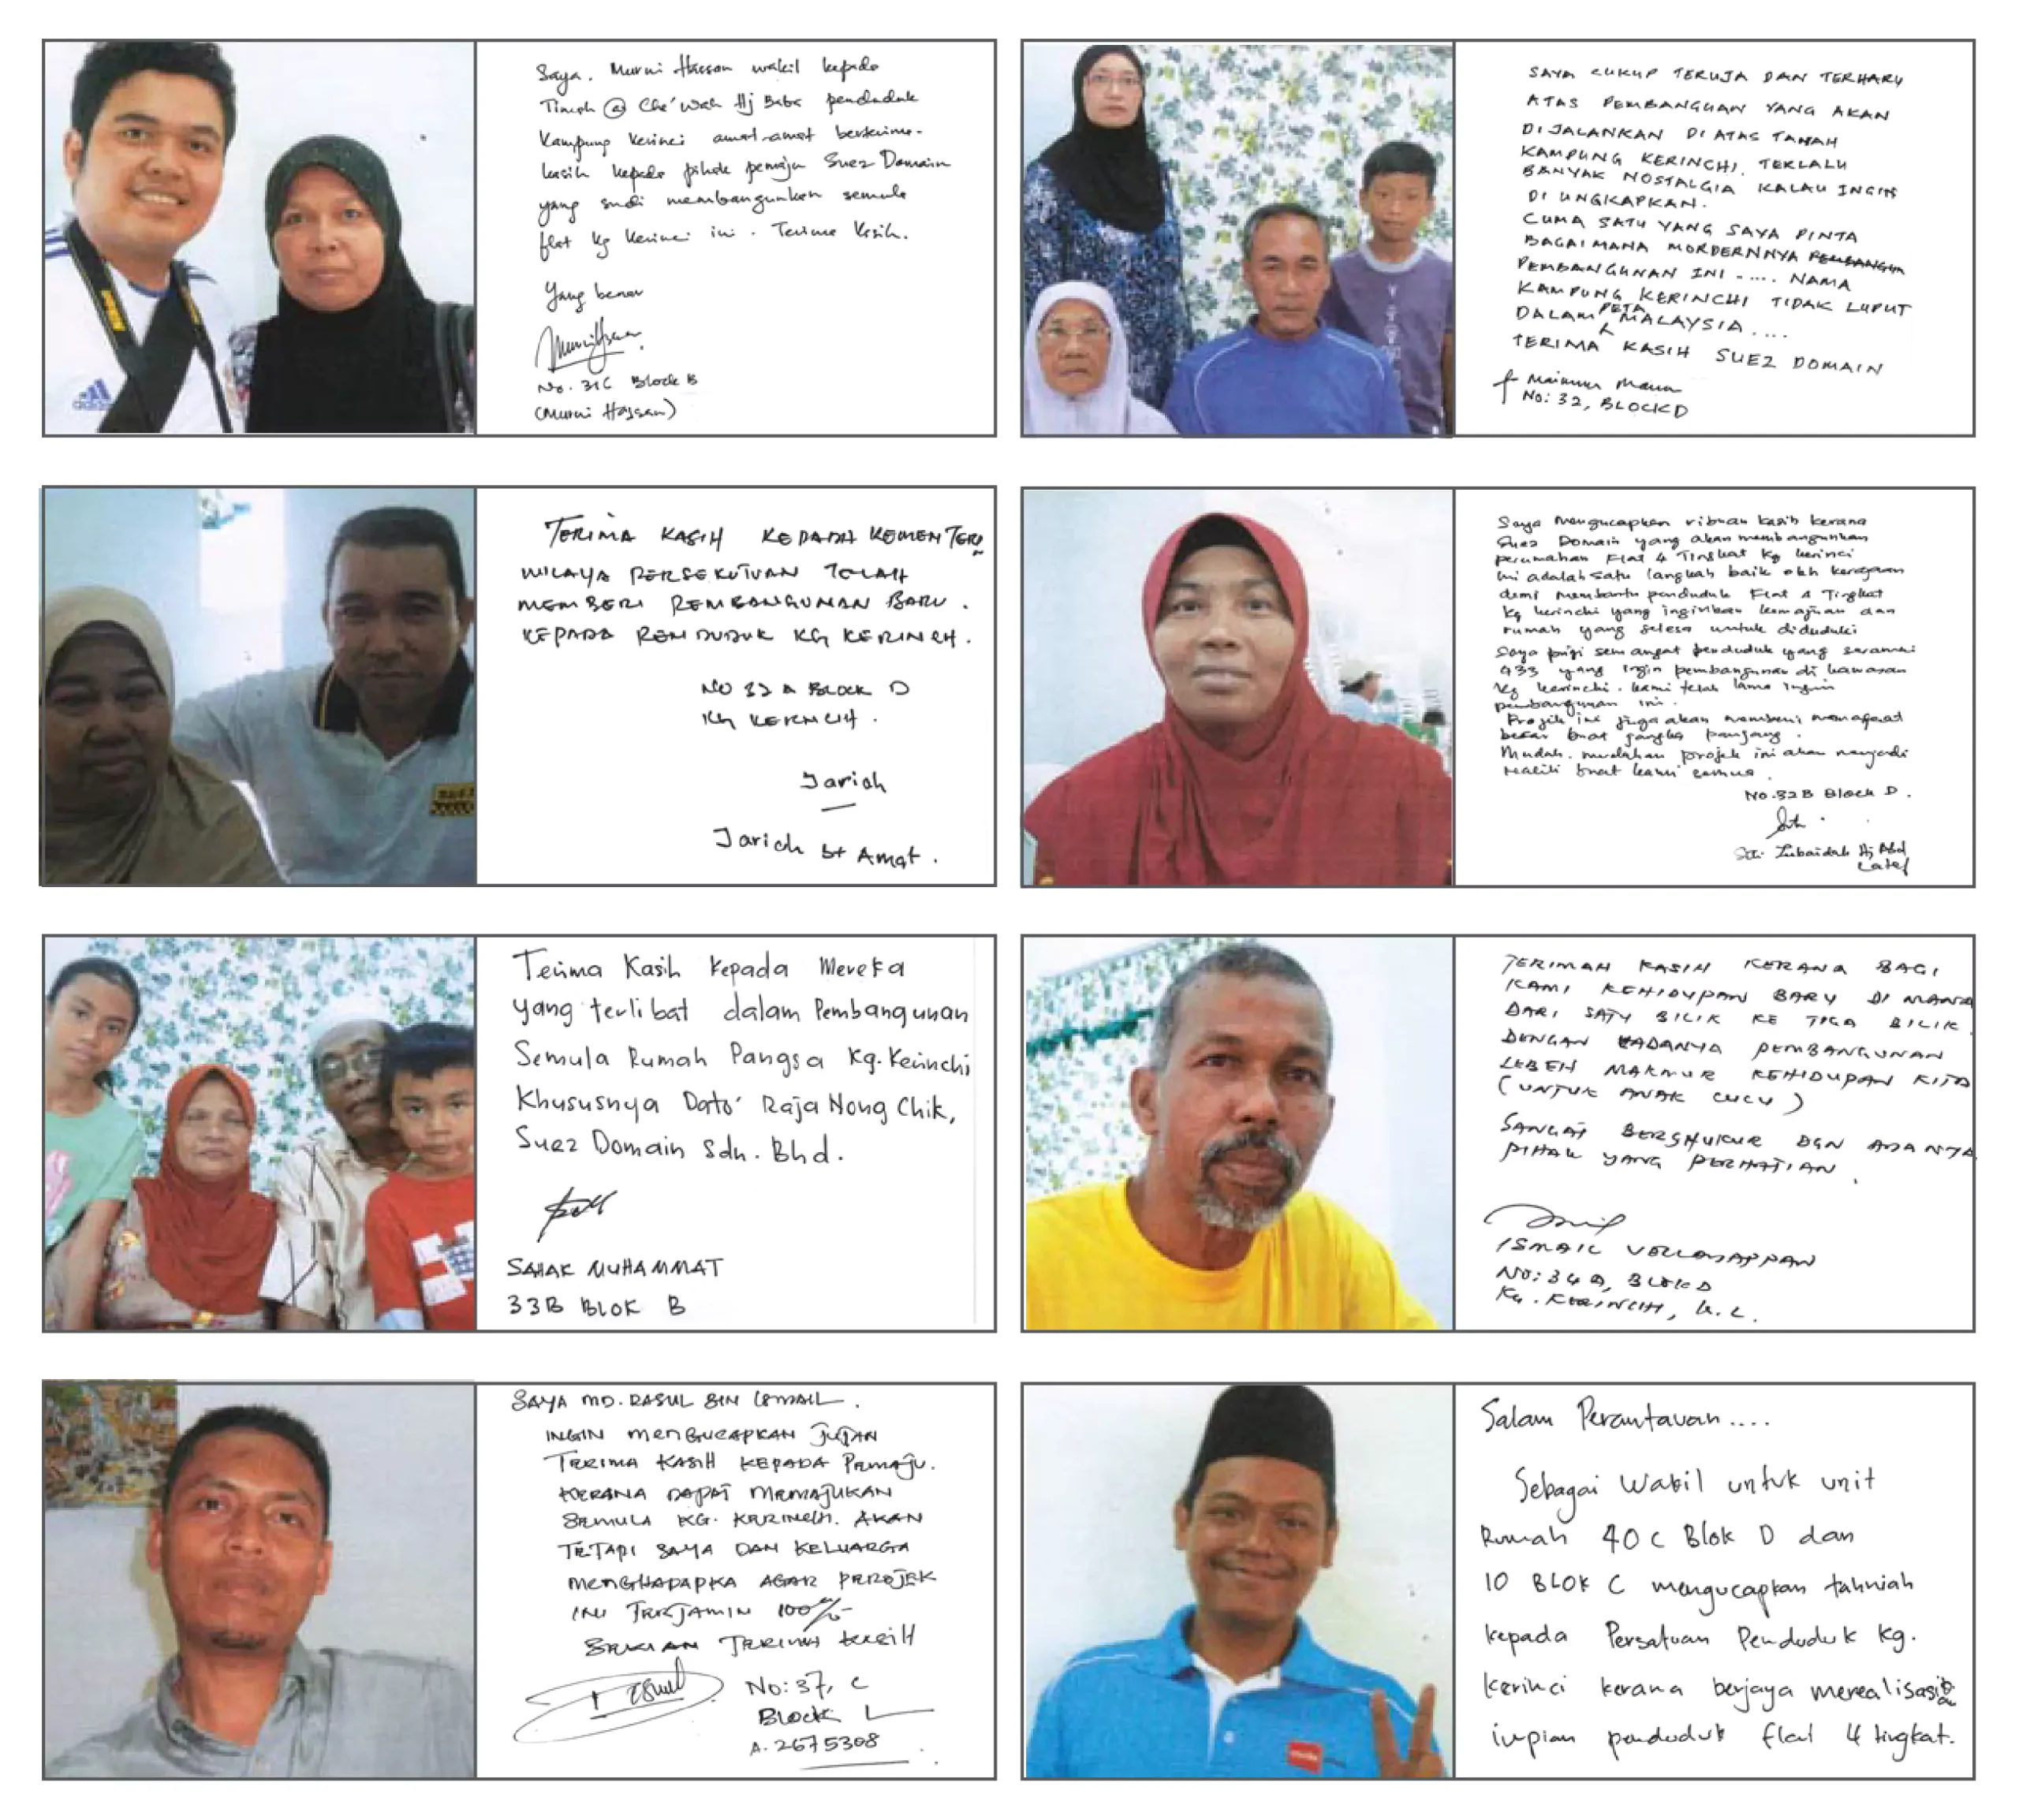 Saya, Murni Hassan wakil kepada
Timah @ Che'Wah Hj Baba penduduk
Kampung Kerinci amat-amat berterima-
kasih kepada pihak pemaju Suez Domain
yang sudi membangunkan semula
flat Kg Kerinci ini. Terima Kasih.
Yang benar
No. 31C Block B
(Murni Hassan)
SAYA CUKUP TERUJA DAN TERHARU
ATAS PEMBANGUAN YANG AKAN
DIJALANKAN DI ATAS TANAH
KAMPUNG KERINCHI. TERLALU
BANYAK NOSTALGIA KALAU INGIN
DI UNGKAPKAN.
CUMA SATU YANG SAYA PINTA
BAGAIMANA MORDERNNYA
PEMBANGUNAN INI ..... NAMA
KAMPUNG KERINCHI TIDAK LUPUT
DALAM PETA MALAYSIA ....
TERIMA KASIH SUEZ DOMAIN
Maimun
No: 32, BLOCK D
TERIMA KASIH KEPADA KEMENTERI
WILAYA PERSEKUTUAN TELAH
MEMBERI PEMBANGUNAN BARU.
KEPADA PENDUDUK KG KERINCH.
NO 32 A BLOCK D
KG KERINCH.
Jariah
Jariah bt Amat.
Saya mengucapkan ribuan kasih kerana
Suez Domain yang akan membangunkan
perumahan Flat 4 Tingkat Kg kerinci
Ini adalah satu langkah baik oleh kerajaan
demi membantu penduduk Flat 4 Tingkat
Kg kerinchi yang inginkan kemajuan dan
rumah yang selesa untuk diduduki
Saya puji semangat penduduk yang seramai
433 yang ingin pembangunan di kawasan
Kg kerinchi. kami telah lama ingin
pembangunan ini.
Projek ini juga akan memberi menafaat
besar buat jangka panjang.
Mudah-mudahan projek ini akan menjadi
realiti buat kami semua.
No.32B Block D.
Siti Zubaidah Hj Abd
Latef
Terima Kasih Kepada Mereka
yang terlibat dalam Pembangunan
Semula Rumah Pangsa Kg. Kerinchi
Khususnya Dato' Raja Nong Chik,
Suez Domain Sdn. Bhd.
SAHAK MUHAMMAT
33B BLOK B
TERIMAH KASIH KERANA BAGI
KAMI KEHIDUPAN BARU DI MANA
DARI SATU BILIK KE TIGA BILIK
DENGAN ADANYA PEMBANGUNAN
LEBEH MAKMUR KEHIDUPAN KITA
(UNTUK ANAK CUCU)
SANGAT BERSHUKUR DGN ADANYA
PIHAK YANG PERHATIAN.
ISMAIL VELLASAPPAN
NO: 34 A, BLOK D
KG. KERINCHI, K.L.
SAYA MD. RASUL BIN ISMAIL.
INGIN MENGUCAPKAN JUTAN
TERIMA KASIH KEPADA PEMAJU.
KERANA DAPAT MEMAJUKAN
SEMULA KG. KERINCHI. AKAN
TETAPI SAYA DAN KELUARGA
MENGHARAPKA AGAR PEROJEK
INI TERJAMIN 100%
SEKIAN TERIMA KASIH
No: 37, C
BLOCK
A. 2675308
Salam Perantauan....
Sebagai Wakil untuk unit
Rumah 40 C Blok D dan
10 BLOK C mengucapkan tahniah
kepada Persatuan Penduduk Kg.
Kerinci kerana berjaya merealisasikan
impian penduduk flat 4 tingkat.
adidas